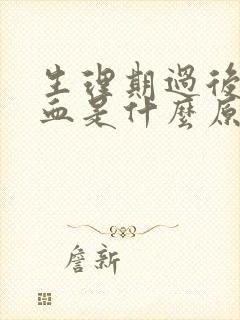 生理期過後
血是什麼原
詹新